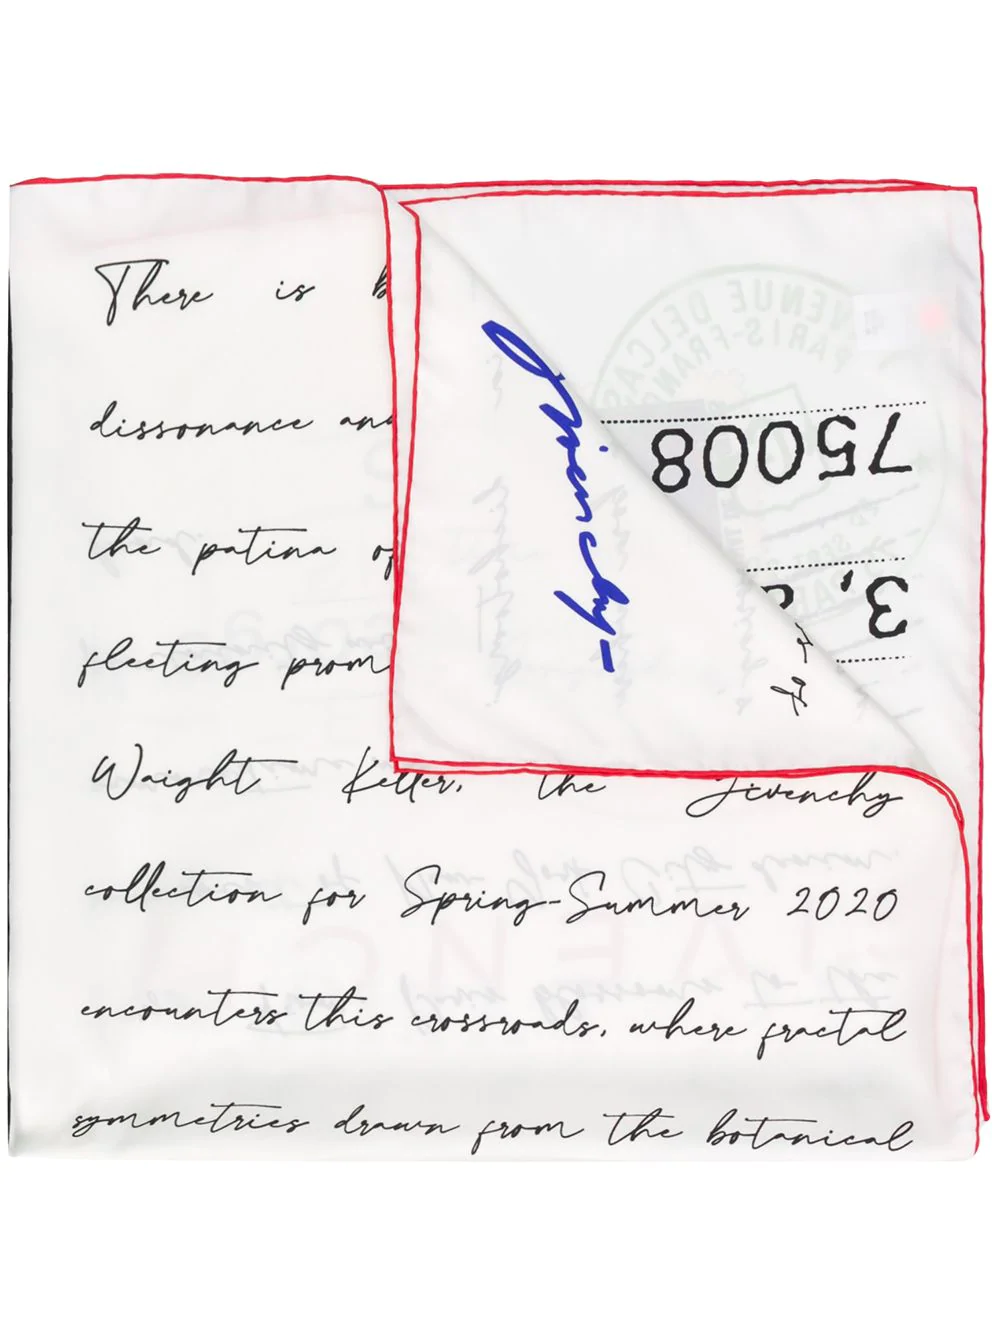 There is
dissonance and
the patina of
fleeting prom
Weight Keller, the Givenchy
collection for Spring-Summer 2020
encounters this crossroads, where fractal
symmetries drawn from the botanical
Givenchy-
75008
3,
of
AVENUE DEL
PARIS-FRAN